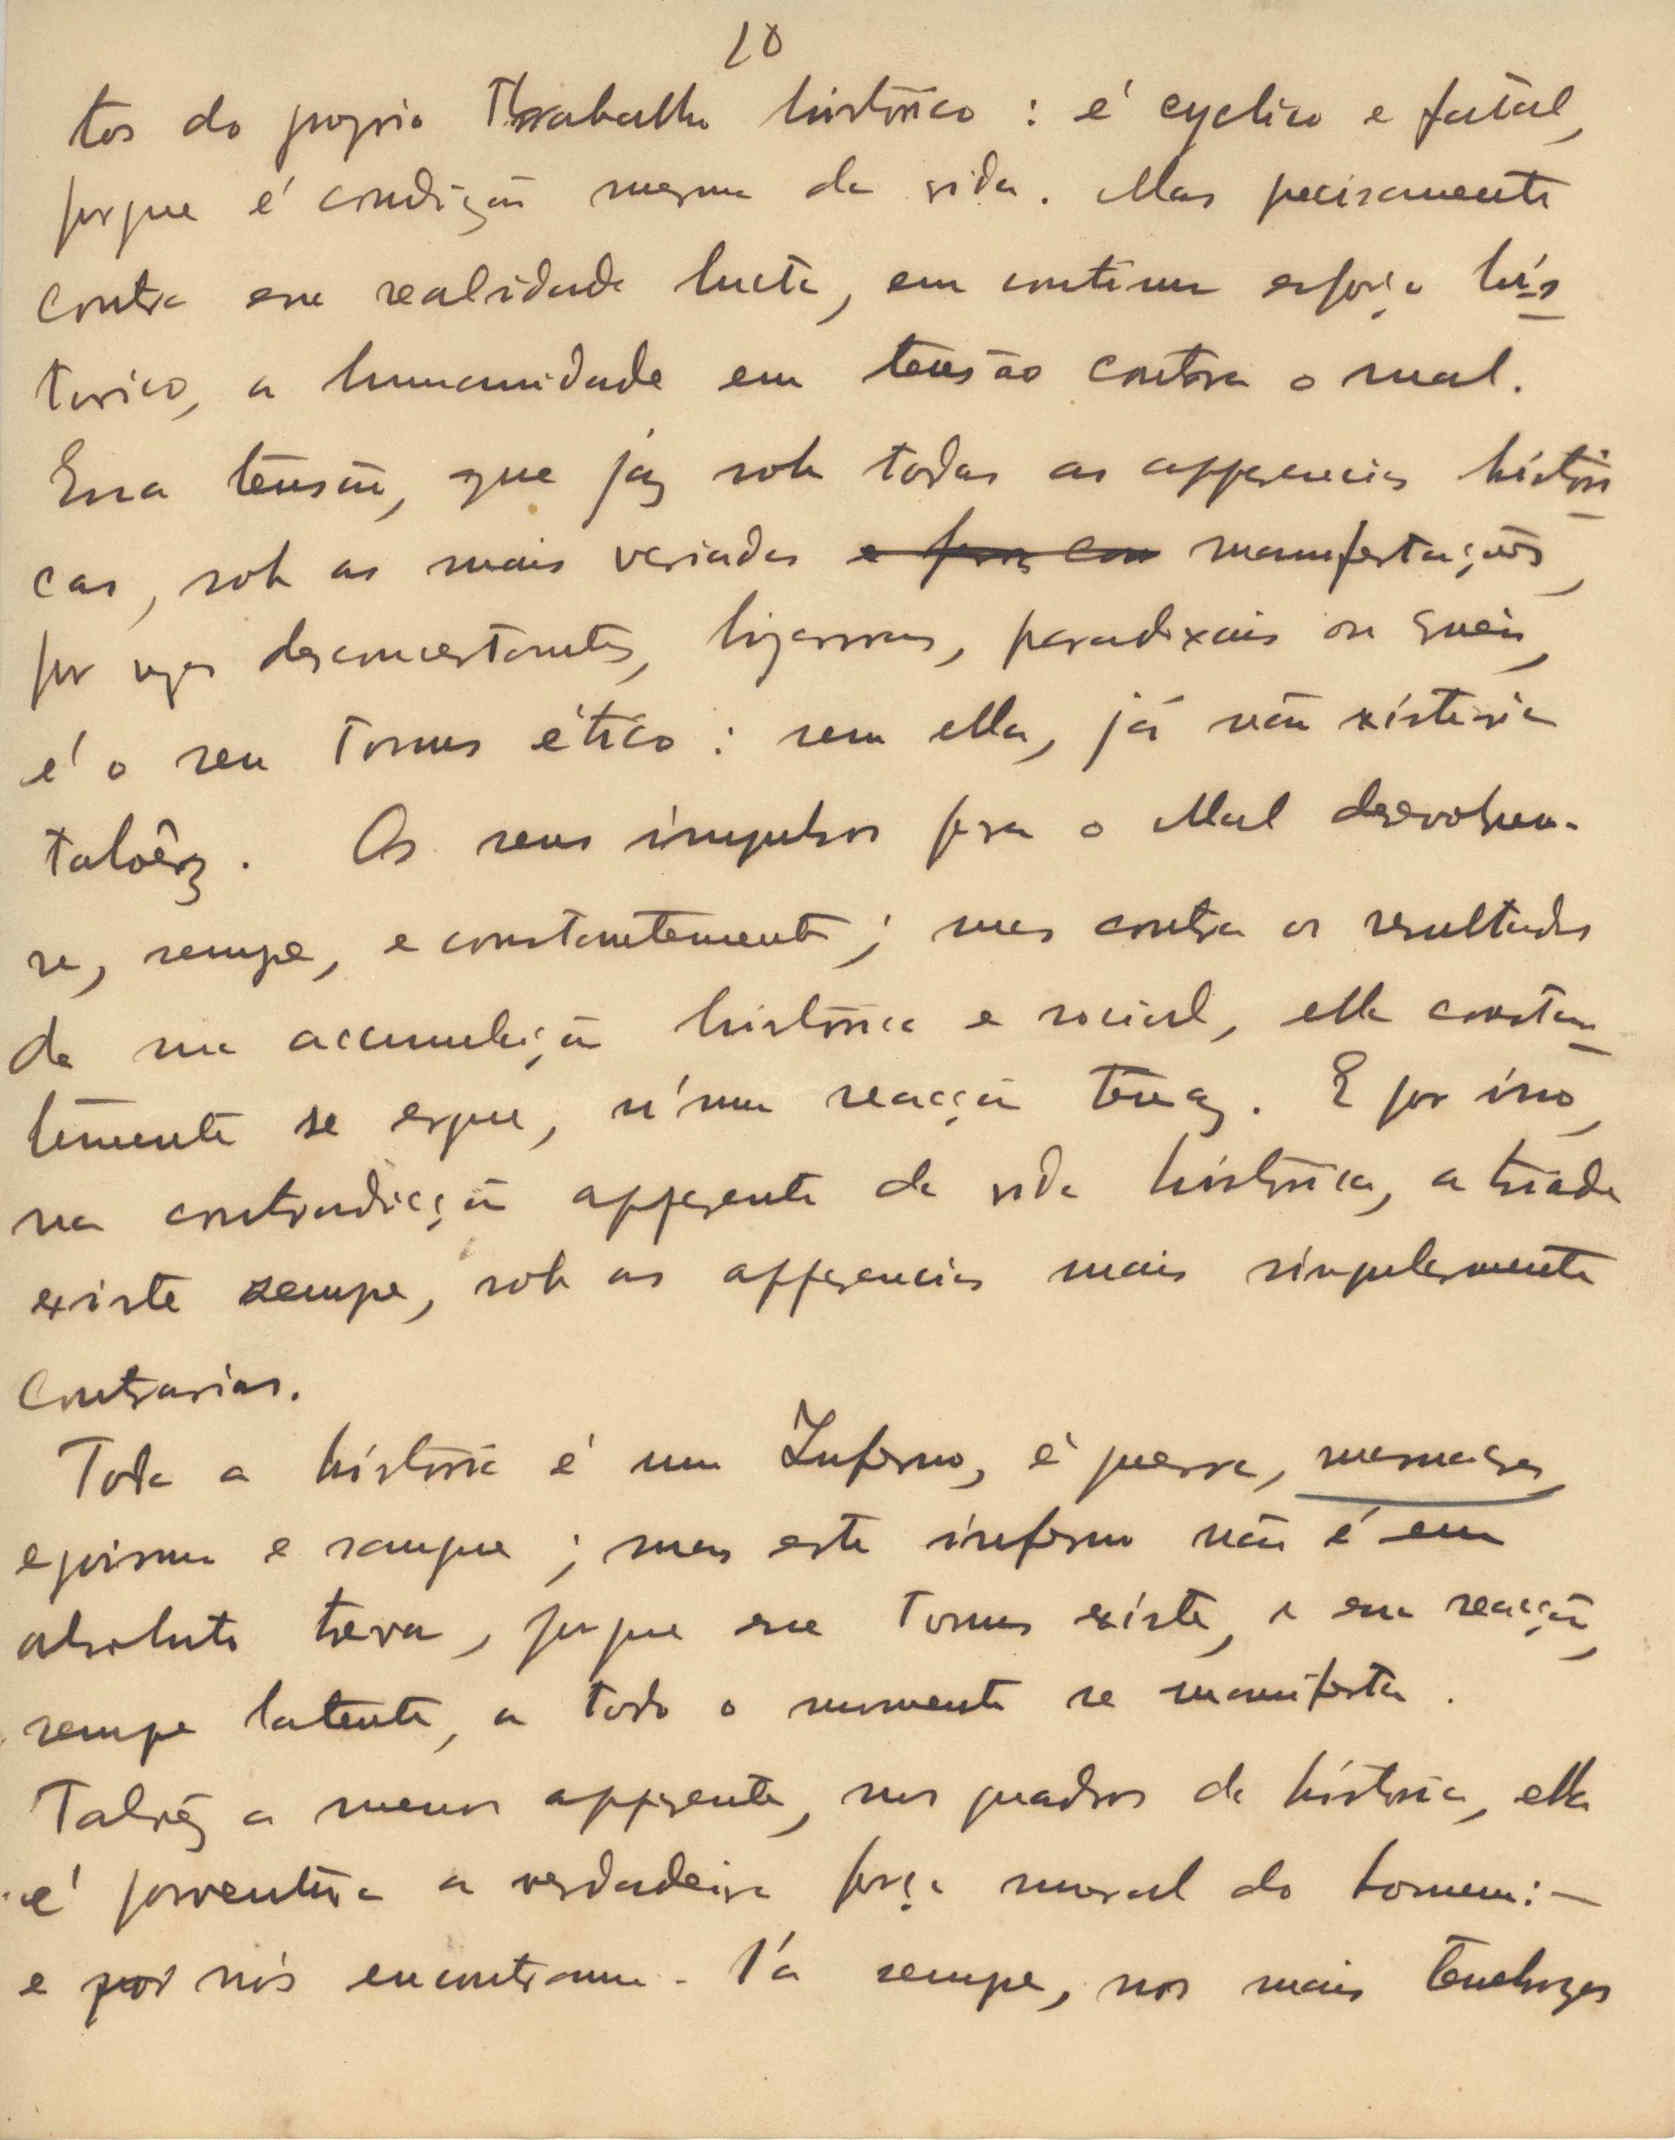 10
tos do proprio Trabalho histórico : é cyclico e fatal,
porque é condição mesma da vida. Mas precisamente
contra essa realidade lucta, em continuo esforço his
torico, a humanidade em tensão contra o mal.
Essa tensão, que jaz sob todas as apparencias histori
cas, sob as mais variadas manifestações,
por vezes desconcertantes, bizarras, paradoxais ou crueis,
é o seu Tonus ético : sem ella, já não existiria
talvêz. Os seus impulsos para o Mal desenvolvem-
se, sempre, e constantemente ; mas contra os resultados
da sua accumulação histórica e social, ella constan
temente se ergue, n'uma reacção tenaz. E por isso,
na contradicção apparente da vida histórica, a triade
existe sempre, sob as apparencias mais singularmente
contrarias.
Toda a história é um Inferno, é guerra,
egoismo e sangue ; mas este inferno não é em
absoluto treva, porque esse Tonus existe, e essa reacção,
sempre latente, a todo o momento se manifesta.
Talvêz a menos apparente, nos quadros da história, ella
é porventura a verdadeira força moral do homem : —
e por nós encontramo-l'a sempre, nos mais